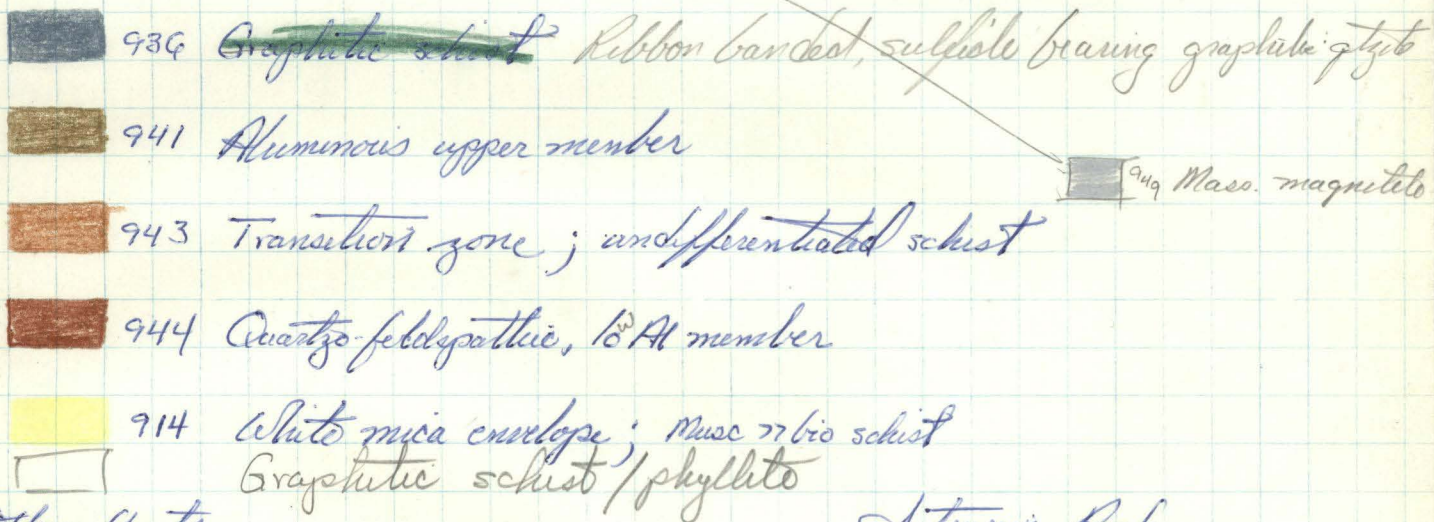 936 Graphitic schist Ribbon banded, sulfide bearing graphitic qtzite
941 Aluminous upper member
949 Mass. magnetite
943 Transition zone; undifferentiated schist
944 Quartzo-feldspathic, low Al member
914 White mica envelope; Musc >> bio schist
Graphitic schist / phyllite